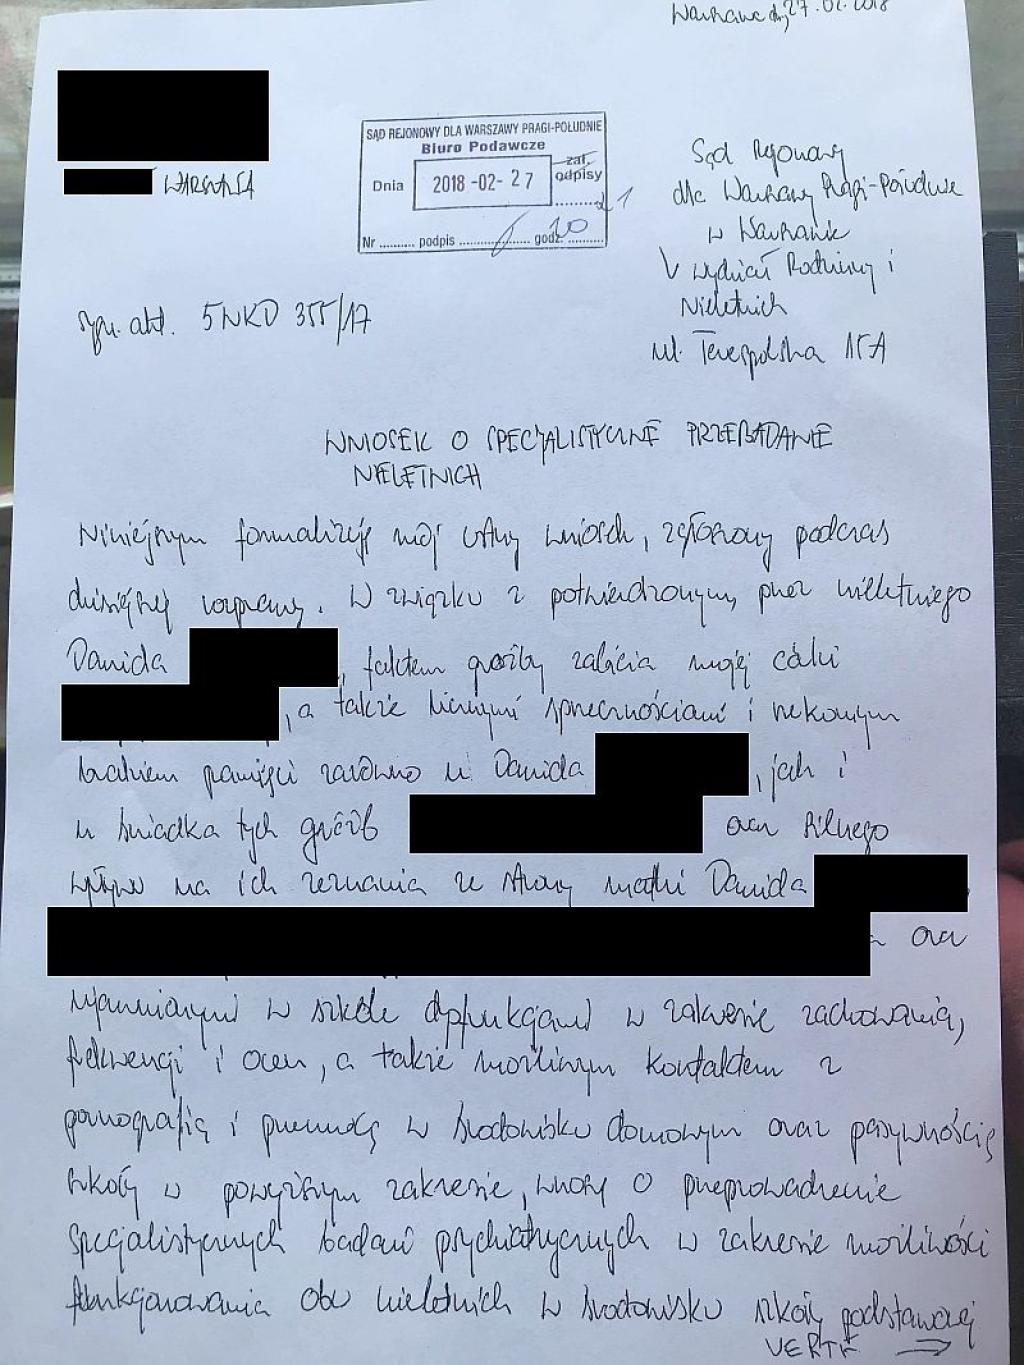 Warszawa dn, 27.02.2018
WARSZAWA
SĄD REJONOWY DLA WARSZAWY PRAGI-POŁUDNIE
Biuro Podawcze
Dnia 2018-02-27
zał.
odpisy
1
Nr .......... podpis .................. godz. 10
Sąd Rejonowy
dla Warszawy Pragi-Południe
w Warszawie
V Wydział Rodzinny i
Nieletnich
ul. Terespolska 15A
sygn. akt. 5NKD 355/17
WNIOSEK O SPECJALISTYCZNE PRZEBADANIE
NIELETNICH
Niniejszym formalizuję mój ustny wniosek, zgłoszony podczas
dzisiejszej rozprawy. W związku z potwierdzonym, przez nieletniego
Dawida , faktem groźby zabicia mojej córki
, a także licznymi sprzecznościami i rzekomym
brakiem pamięci zarówno u Dawida , jak i
u świadka tych gróźb oraz silnego
wpływu na ich zeznania ze strony matki Dawida
oraz
ujawnianymi w szkole dysfunkcjami w zakresie zachowania,
frekwencji i ocen, a także możliwym kontaktem z
pornografią i przemocą w środowisku domowym oraz pasywnością
szkoły w powyższym zakresie, wnoszę o przeprowadzenie
specjalistycznych badań psychiatrycznych w zakresie możliwości
funkcjonowania obu nieletnich w środowisku szkoły podstawowej
VERTE →